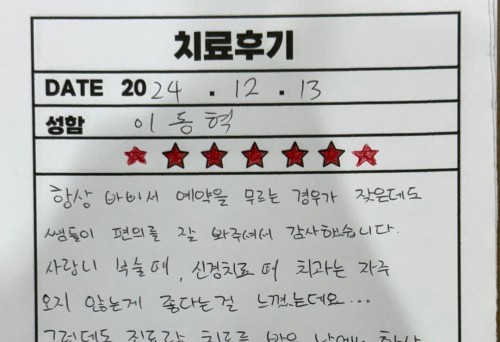 치료후기
DATE 2024 . 12 . 13
성함 이동혁
항상 바빠서 예약을 무르는 경우가 잦은데도
쌤들이 편의를 잘 봐주셔서 감사했습니다.
사랑니 뽑을때, 신경치료 때 치과는 자주
오지 않는게 좋다는걸 느꼈는데요...
그런데도 진료랑 치료를 받은 날에는 항상